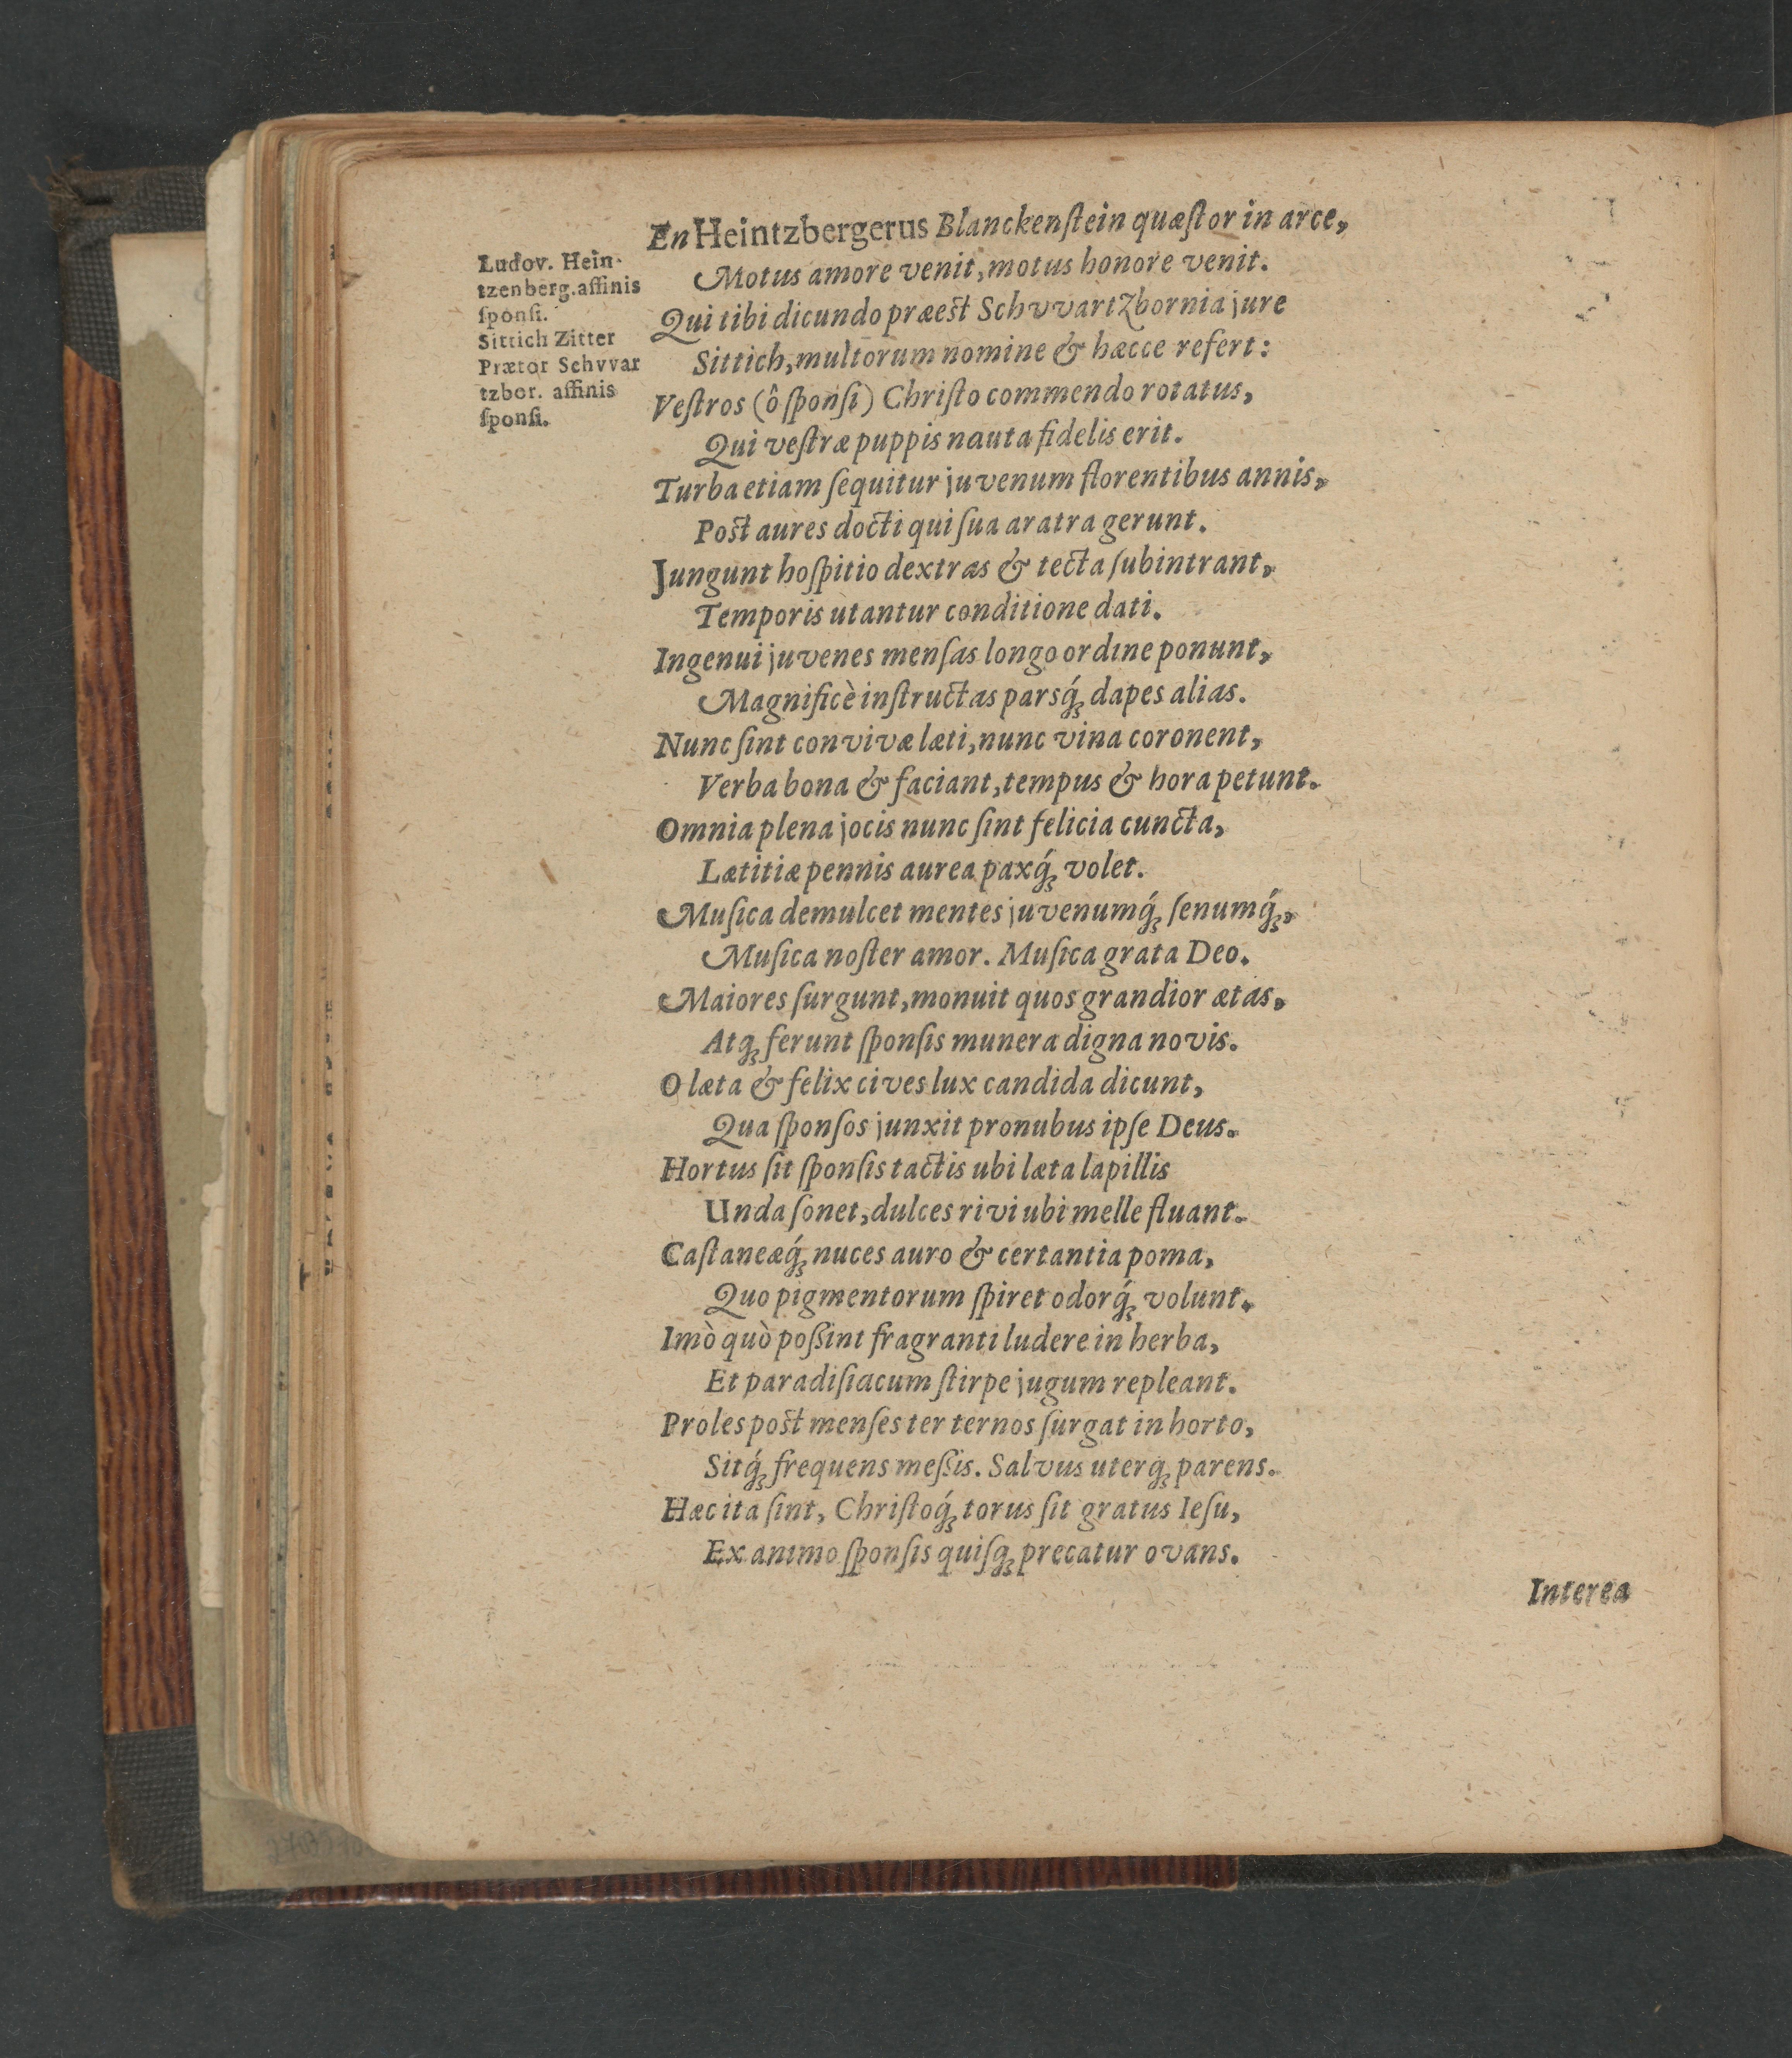 En Heintzbergerus Blanckenſtein quæſtor in arce,
Motus amore venit, motus honore venit.
Qui tibi dicundo præest Schvvartzbornia jure
Sittich, multorum nomine & hæcce refert:
Veſtros (ô ſponſi) Chriſto commendo rotatus,
Qui veſtræ puppis nauta fidelis erit.
Turba etiam ſequitur juvenum florentibus annis,
Post aures docti qui ſua aratra gerunt.
Jungunt hoſpitio dextras & tecta ſubintrant,
Temporis utantur conditione dati.
Ingenui juvenes menſas longo ordine ponunt,
Magnificè inſtructas parsq́ꝫ dapes alias.
Nunc ſint convivæ læti, nunc vina coronent,
Verba bona & faciant, tempus & hora petunt.
Omnia plena jocis nunc ſint felicia cuncta,
Lætitiæ pennis aurea paxq́ꝫ volet.
Muſica demulcet mentes juvenumq́ꝫ ſenumq́ꝫ,
Muſica noſter amor. Muſica grata Deo.
Maiores ſurgunt, monuit quos grandior ætas,
Atqꝫ ferunt ſponſis munera digna novis.
O læta & felix cives lux candida dicunt,
Qua ſponſos junxit pronubus ipſe Deus.
Hortus ſit ſponſis tactis ubi læta lapillis
Unda ſonet, dulces rivi ubi melle fluant.
Caſtaneæq́ꝫ nuces auro & certantia poma,
Quo pigmentorum ſpiret odorq́ꝫ volunt.
Imò quò poßint fragranti ludere in herba,
Et paradiſiacum ſtirpe jugum repleant.
Proles post menſes ter ternos ſurgat in horto,
Sitq́ꝫ frequens meßis. Salvus uterqꝫ parens.
Hæc ita ſint, Chriſtoq́ꝫ torus ſit gratus Ieſu,
Ex animo ſponſis quiſqꝫ precatur ovans.
Interea
Ludov. Hein-
tzenberg. affinis
ſponſi.
Sittich Zitter
Prætor Schvvar
tzbor. affinis
ſponſi.